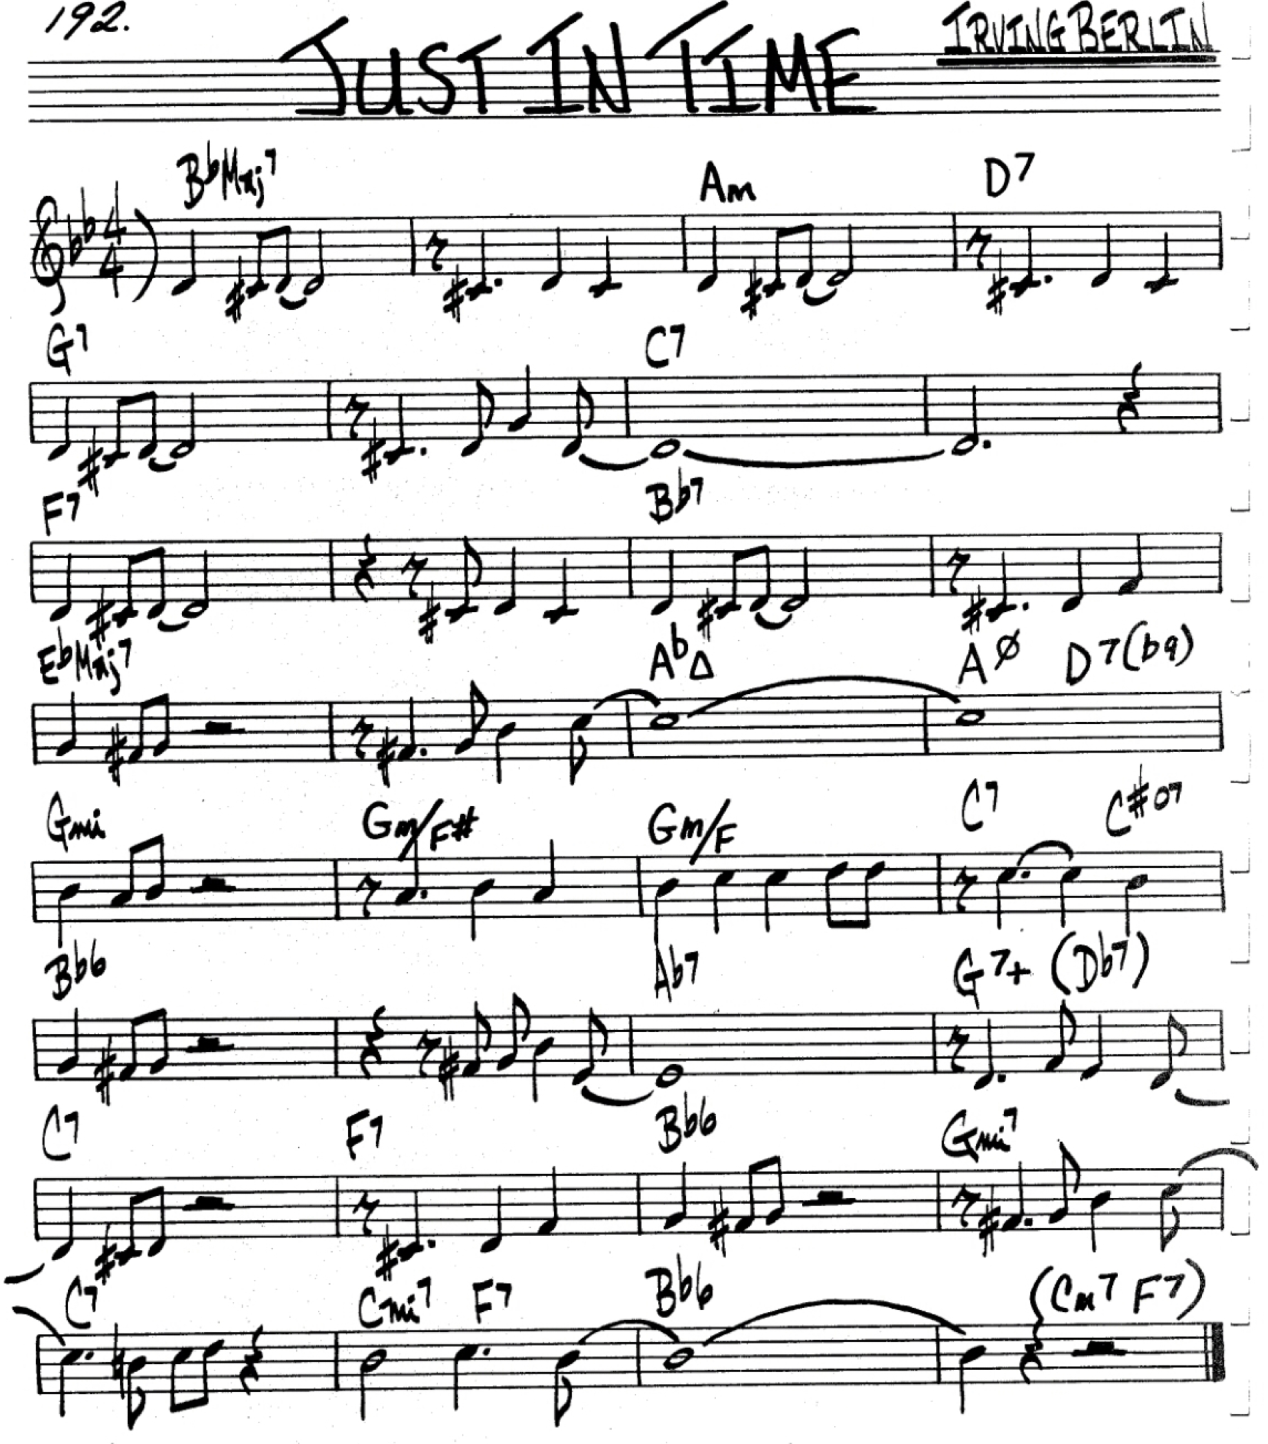 192.
JUST IN TIME
IRVING BERLIN
BbMaj7 Am D7
4
4
G7 C7
F7 Bb7
EbMaj7 AbΔ Aø D7(b9)
Gmi Gm/F# Gm/F C7 C#o7
Bb6 Ab7 G7+ (Db7)
C7 F7 Bb6 Gmi7
C7 Cmi7 F7 Bb6 (Cm7 F7)